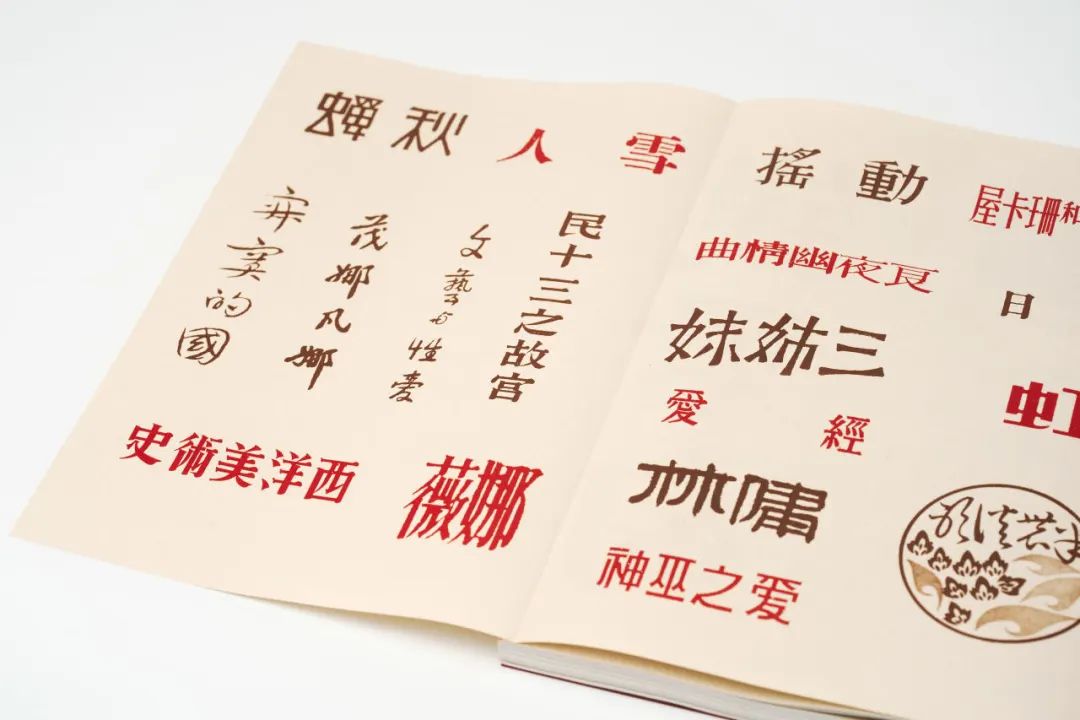 秋蟬
雪人
寂寞的國
茂娜凡娜
文藝与性愛
民十三之故宮
西洋美術史
薇娜
動搖
屋卡珊和
良夜幽情曲
日
三姊妹
虹
愛經
林
神巫之爱